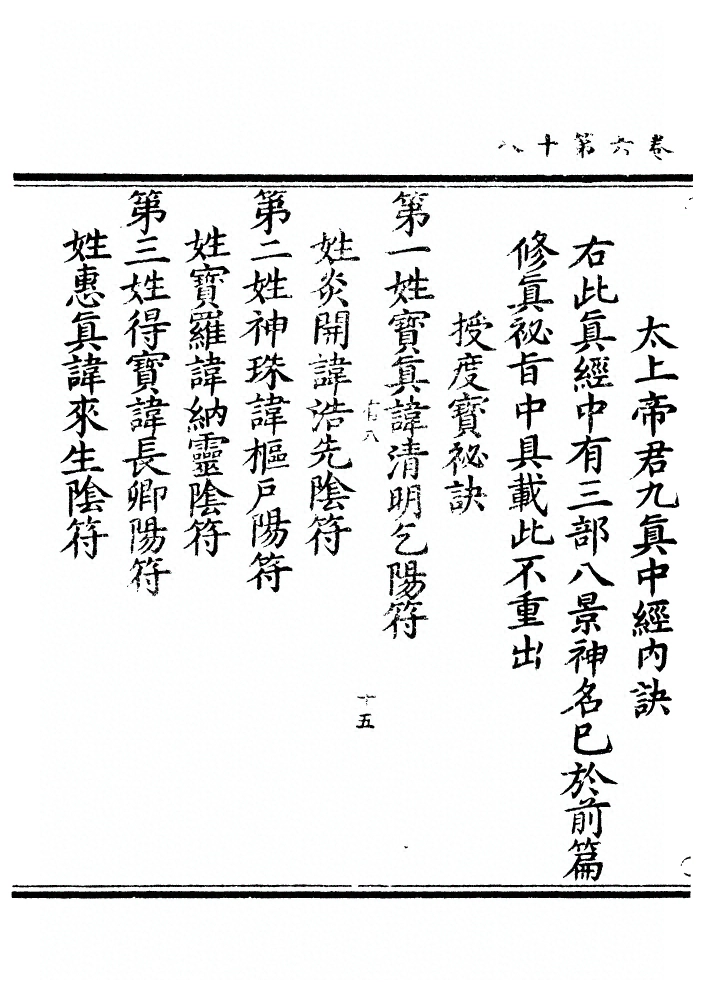 卷六第十八
太上帝君九眞中經內訣
右此眞經中有三部八景神名巳於前篇
修眞祕旨中具載此不重出
授度寶祕訣
第一姓寶眞諱清明乞陽符
十五
姓炎開諱浩先陰符
第二姓神珠諱樞戶陽符
姓寶羅諱納靈陰符
第三姓得寶諱長卿陽符
姓惠眞諱來生陰符